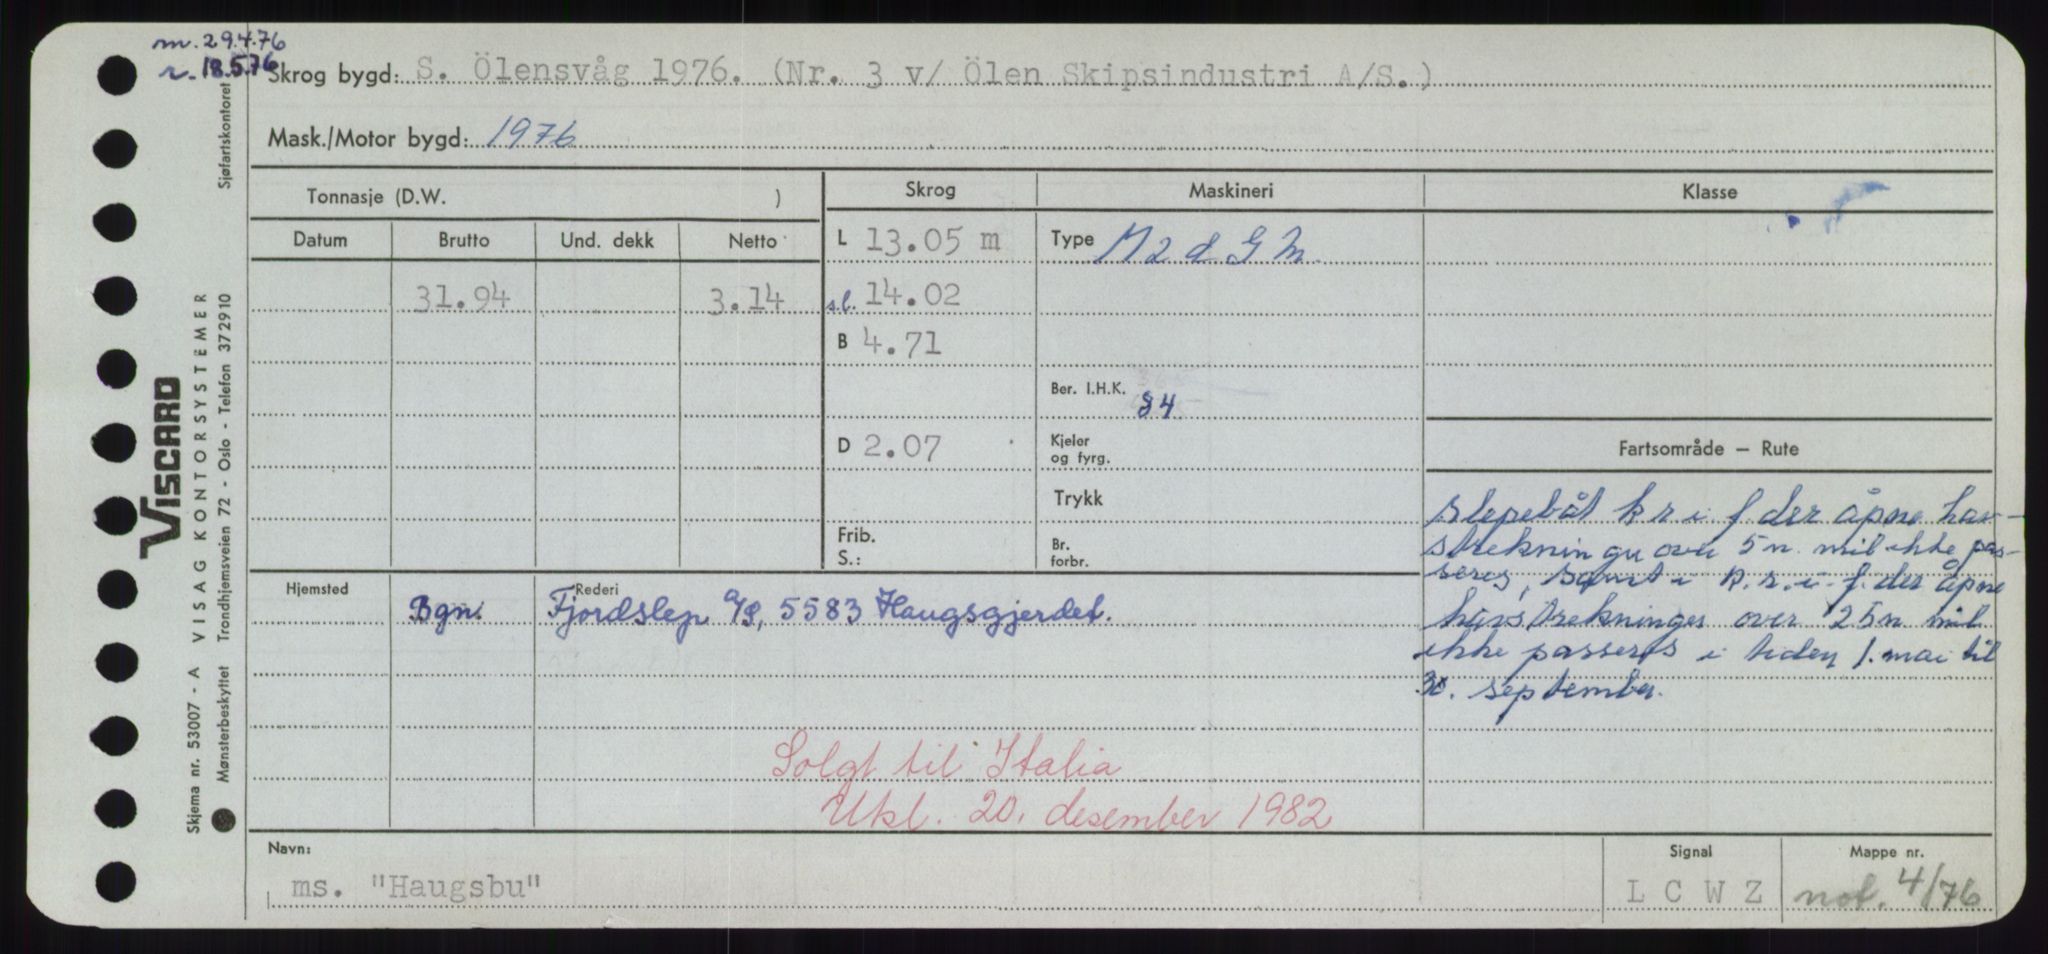 m. 29.4.76
r. 18.5.76
Skrog bygd: S. Ölensvåg 1976. (Nr. 3 v/ Ölen Skipsindustri A/S.)
Mask./Motor bygd: 1976
Tonnasje (D.W. ) Skrog Maskineri Klasse
Datum Brutto Und. dekk Netto L 13.05 m Type M 2 d G M
31.94 3.14 s.l. 14.02
B 4.71
Ber. I.H.K. 84
D 2.07 Kjeler og fyrg. Fartsområde — Rute
Trykk
Frib. S.: Br. forbr.
slepebåt k r i f der åpne hav-
strekninger over 5 n. mil ikke pas-
seres, samt i k.r.i f. der åpne
havstrekninger over 25 n. mil
ikke passeres i tiden 1. mai til
30. september.
Hjemsted Rederi
Bgn. Fjordslep A/S, 5583 Haugsgjerdet.
Solgt til Italia
Utkl. 20. desember 1982
Navn: Signal Mappe nr.
ms. "Haugsbu" L C W Z not. 4/76
Sjøfartskontoret
VISCARD
VISAG KONTORSYSTEMER
Skjema nr. 53007 - A
Mønsterbeskyttet Trondhjemsveien 72 - Oslo - Telefon 372910